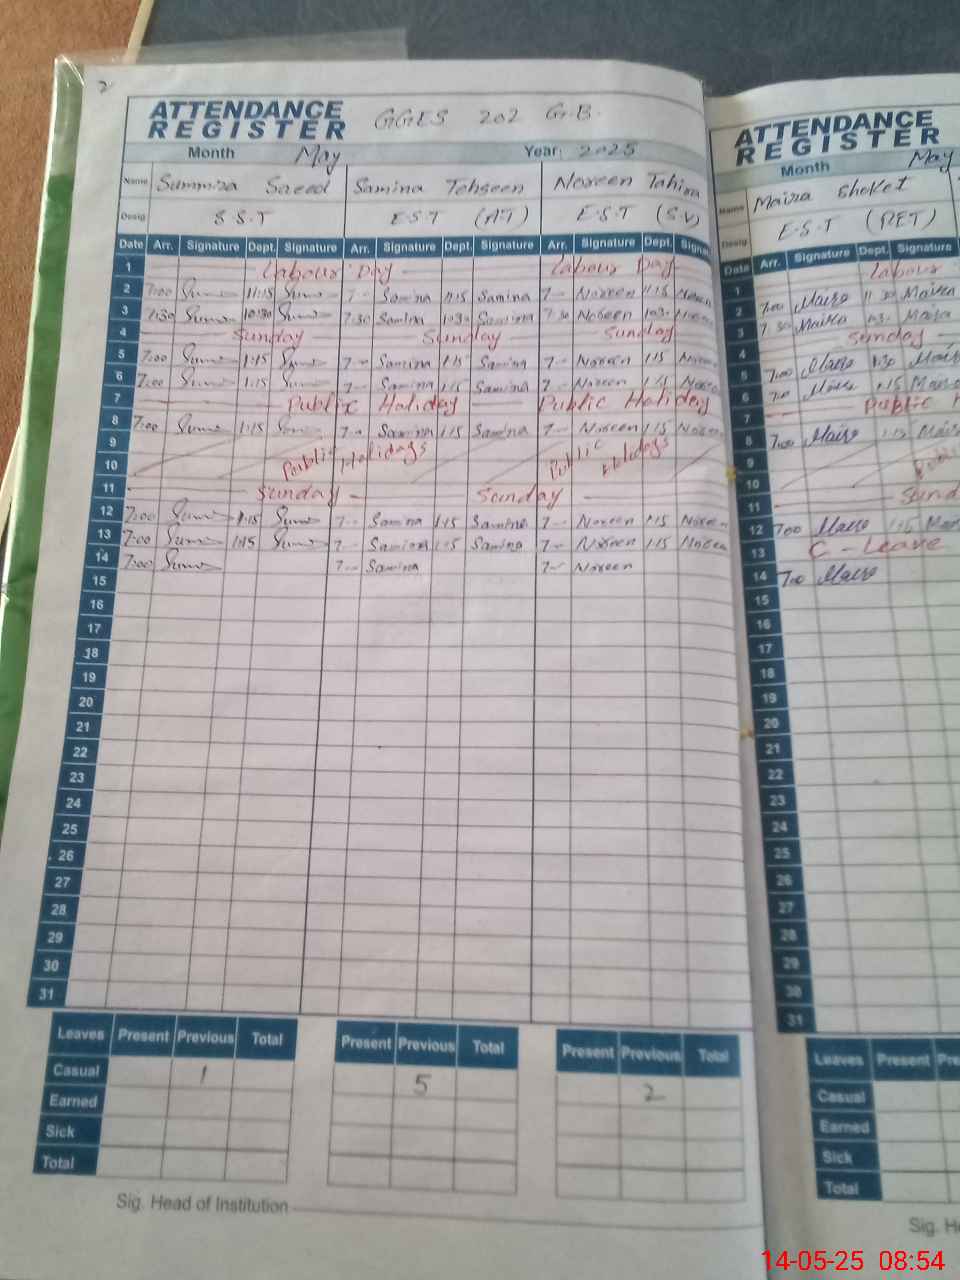 2
ATTENDANCE REGISTER GGES 202 G.B.
Month May Year: 2025
Name Summira Saeed Samina Tehseen Noreen Tahira
Desig. S.S.T E.S.T (AT) E.S.T (S.V)
Date Arr. Signature Dept. Signature Arr. Signature Dept. Signature Arr. Signature Dept. Signature
1 Labour Day Labour Day
2 7:00 11:15 7-- Samina 11:15 Samina 7-- Noreen 11:15 Noreen
3 7:30 10:30 7:30 Samina 10:30 Samina 7:30 Noreen 10:30 Noreen
4 Sunday Sunday Sunday
5 7:00 1:15 7-- Samina 1:15 Samina 7-- Noreen 1:15 Noreen
6 7:00 1:15 7-- Samina 1:15 Samina 7-- Noreen 1:15 Noreen
7 Public Holiday Public Holiday
8 7:00 1:15 7-- Samina 1:15 Samina 7-- Noreen 1:15 Noreen
9 Public Holidays Public Holidays
10
11 Sunday Sunday
12 7:00 1:15 7-- Samina 1:15 Samina 7-- Noreen 1:15 Noreen
13 7:00 1:15 7-- Samina 1:15 Samina 7-- Noreen 1:15 Noreen
14 7:00 7-- Samina 7-- Noreen
15
16
17
18
19
20
21
22
23
24
25
26
27
28
29
30
31
Leaves Present Previous Total Present Previous Total Present Previous Total
Casual 1 5 2
Earned
Sick
Total
Sig. Head of Institution
ATTENDANCE REGISTER
Month May
Name Maira Shoket
Desig. E.S.T (PET)
Date Arr. Signature Dept. Signature
1 Labour
2 7:00 Maira 11:30 Maira
3 7:30 Maira 10:30 Maira
4 Sunday
5 7:00 Maira 1:30 Maira
6 7:00 Maira 1:15 Maira
7 Public
8 7:00 Maira 1:15 Maira
9
10
11 Sund
12 7:00 Maira 1:15 Maira
13 C-Leave
14 7:00 Maira
15
16
17
18
19
20
21
22
23
24
25
26
27
28
29
30
31
Leaves Present
Casual
Earned
Sick
Total
Sig. H
14-05-25 08:54